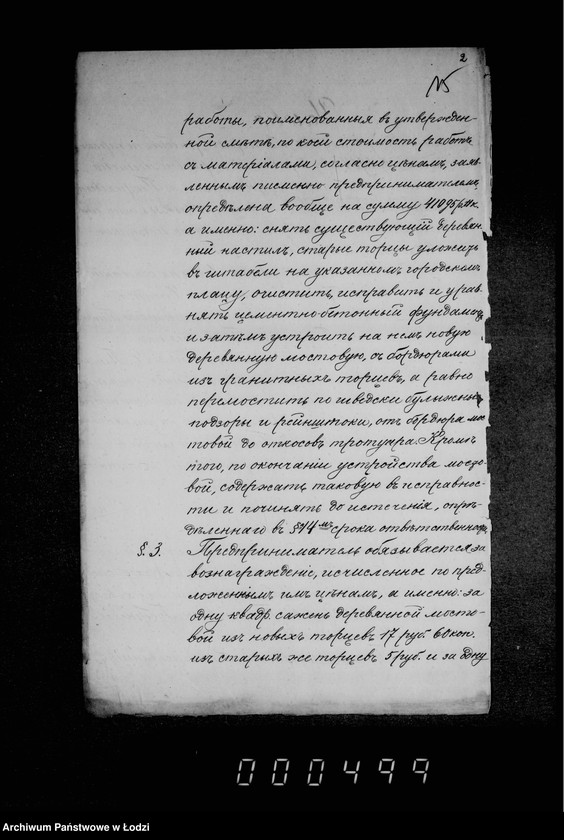 2
№
работы, поименованныя въ утвержден-
ной смѣтѣ, по коей стоимость работъ
съ матеріалами, согласно цѣнамъ, заяв-
леннымъ письменно предпринимателемъ
опредѣлена вообще на сумму 41095 р.
а именно: снять существующій деревян-
ный настилъ, старые торцы уложить
въ штабели на указанномъ городскомъ
плацу, очистить, исправить и урав-
нять цементно-бетонный фундаментъ
и затѣмъ устроить на немъ новую
деревянную мостовую, съ бордюрами
изъ гранитныхъ торцевъ, а равно
перемостить по шведски булыжные
подзоры и рейнштоки, отъ бордюра мос-
товой до откосовъ тротуара. Кромѣ
того, по окончаніи устройства мосто-
вой, содержать таковую въ исправнос-
ти и починять до истеченія, опре-
дѣленнаго въ §14мъ срока отвѣтственности
§. 3. Предприниматель обязывается за
вознагражденіе, исчисленное по пред-
ложеннымъ имъ цѣнамъ, а именно: за
одну квадр. сажень деревянной мосто-
вой изъ новыхъ торцевъ 17 руб 60 коп.
изъ старыхъ же торцевъ 5 руб. и за одну
000499
Archiwum Państwowe w Łodzi